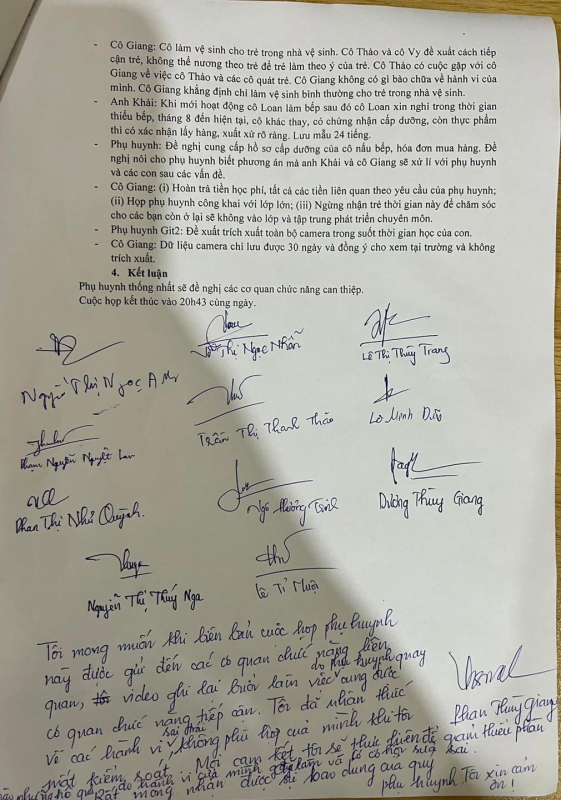 - Cô Giang: Cô làm vệ sinh cho trẻ trong nhà vệ sinh. Cô Thảo và cô Vy đề xuất cách tiếp
cận trẻ, không thể nương theo trẻ để trẻ làm theo ý của trẻ. Cô Thảo có cuộc gặp với cô
Giang về việc cô Thảo và các cô quát trẻ. Cô Giang không có gì bào chữa về hành vi của
mình. Cô Giang khẳng định chỉ làm vệ sinh bình thường cho trẻ trong nhà vệ sinh.
- Anh Khải: Khi mới hoạt động cô Loan làm bếp sau đó cô Loan xin nghỉ trong thời gian
thiếu bếp, tháng 8 đến hiện tại, cô khác thay, có chứng nhận cấp dưỡng, còn thực phẩm
thì có xác nhận lấy hàng, xuất xứ rõ ràng. Lưu mẫu 24 tiếng.
- Phụ huynh: Đề nghị cung cấp hồ sơ cấp dưỡng của cô nấu bếp, hóa đơn mua hàng. Đề
nghị nói cho phụ huynh biết phương án mà anh Khải và cô Giang sẽ xử lí với phụ huynh
và các con sau các vấn đề.
- Cô Giang: (i) Hoàn trả tiền học phí, tất cả các tiền liên quan theo yêu cầu của phụ huynh;
(ii) Họp phụ huynh công khai với lớp lớn; (iii) Ngừng nhận trẻ thời gian này để chăm sóc
cho các bạn còn ở lại sẽ không vào lớp và tập trung phát triển chuyên môn.
- Phụ huynh Git2: Đề xuất trích xuất toàn bộ camera trong suốt thời gian học của con.
- Cô Giang: Dữ liệu camera chỉ lưu được 30 ngày và đồng ý cho xem tại trường và không
trích xuất.
4. Kết luận
Phụ huynh thống nhất sẽ đề nghị các cơ quan chức năng can thiệp.
Cuộc họp kết thúc vào 20h43 cùng ngày.
Thị Ngọc Nhân
Lê Thị Thùy Trang
Thị Ngọc
Trần Thị Thanh Thảo
Lo Minh
Phạm Nguyễn Nguyệt
Phan Thị Như Quỳnh.
Ngô Phương
Dương Thùy Giang
Nguyễn Thị Thúy Nga
Lê Tỉ Muội
Tôi mong muốn khi biên bản cuộc họp phụ huynh
này được gửi đến các cơ quan chức năng liên
do phụ huynh quay
quan, video ghi lại buổi làm việc cung được
cơ quan chức năng tiếp cận. Tôi đã nhận thức
sai trái
về các hành vi không phù hợp của mình khi tôi
Phan Thùy Giang
mất kiểm soát. Mọi cam kết tôi sẽ thực hiện để giảm thiểu phần
do hành vi của mình gây làm và có cơ hội sửa sai.
Rất mong nhận được sự bao dung của quý
phụ huynh Tôi xin cảm
ơn!